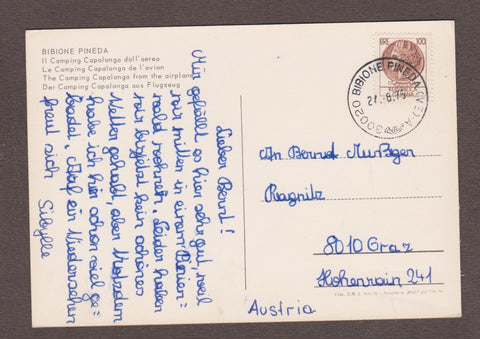 BIBIONE PINEDA
Il Camping Capalonga dall'aereo
Le Camping Capalonga de l'avion
The Camping Capalonga from the airplane
Der Camping Capalonga aus Flugzeug
LIRE 100
30020 BIBIONE PINEDA (VE)
Lieber Bernd!
Mir gefällt es hier sehr gut, weil
wir mitten in einem Pinien-
wald wohnen. Leider haben
wir bis jetzt kein schönes
Wetter gehabt, aber trotzdem
habe ich hier schon viel ge-
badet. Auf ein Wiedersehen
freut sich
Sibylle
An Bernd
Ragnitz
8010 Graz
Hohenrain 241
Austria